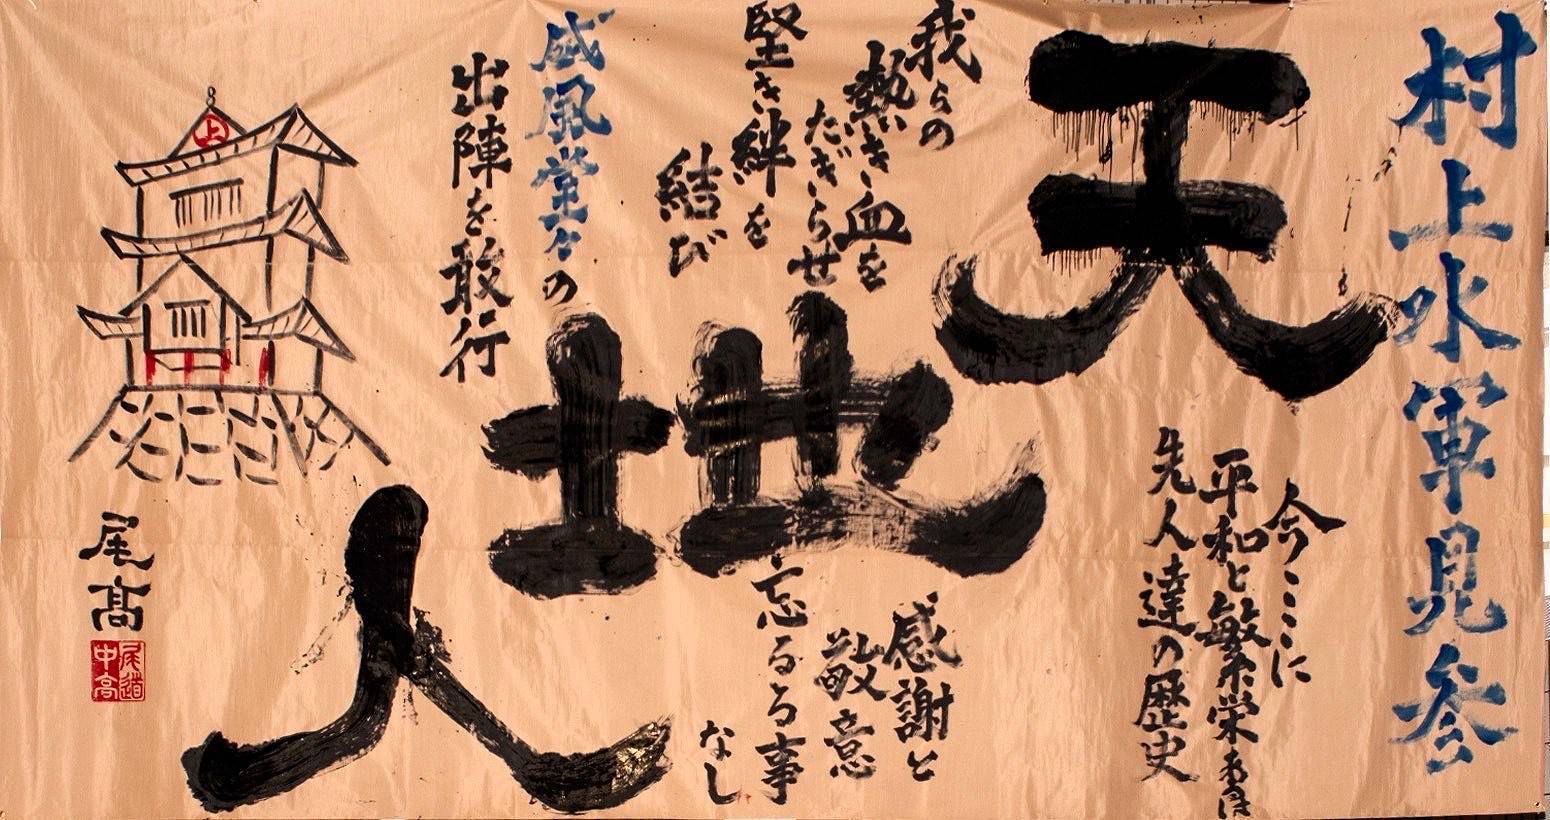 村上水軍見参
天
今ここに
平和と繁栄あるは
先人達の歴史
我らの
熱き血を
たぎらせ
堅き絆を
結び
地
感謝と
敬意
忘るる事
なし
威風堂々の
出陣を敢行
人
上
尾高
尾道
中高